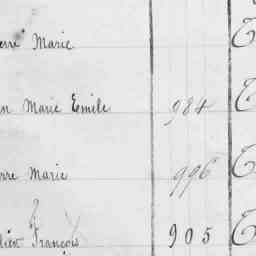 erre Marie
n Marie Emile 984
rre Marie 996
lien François 905